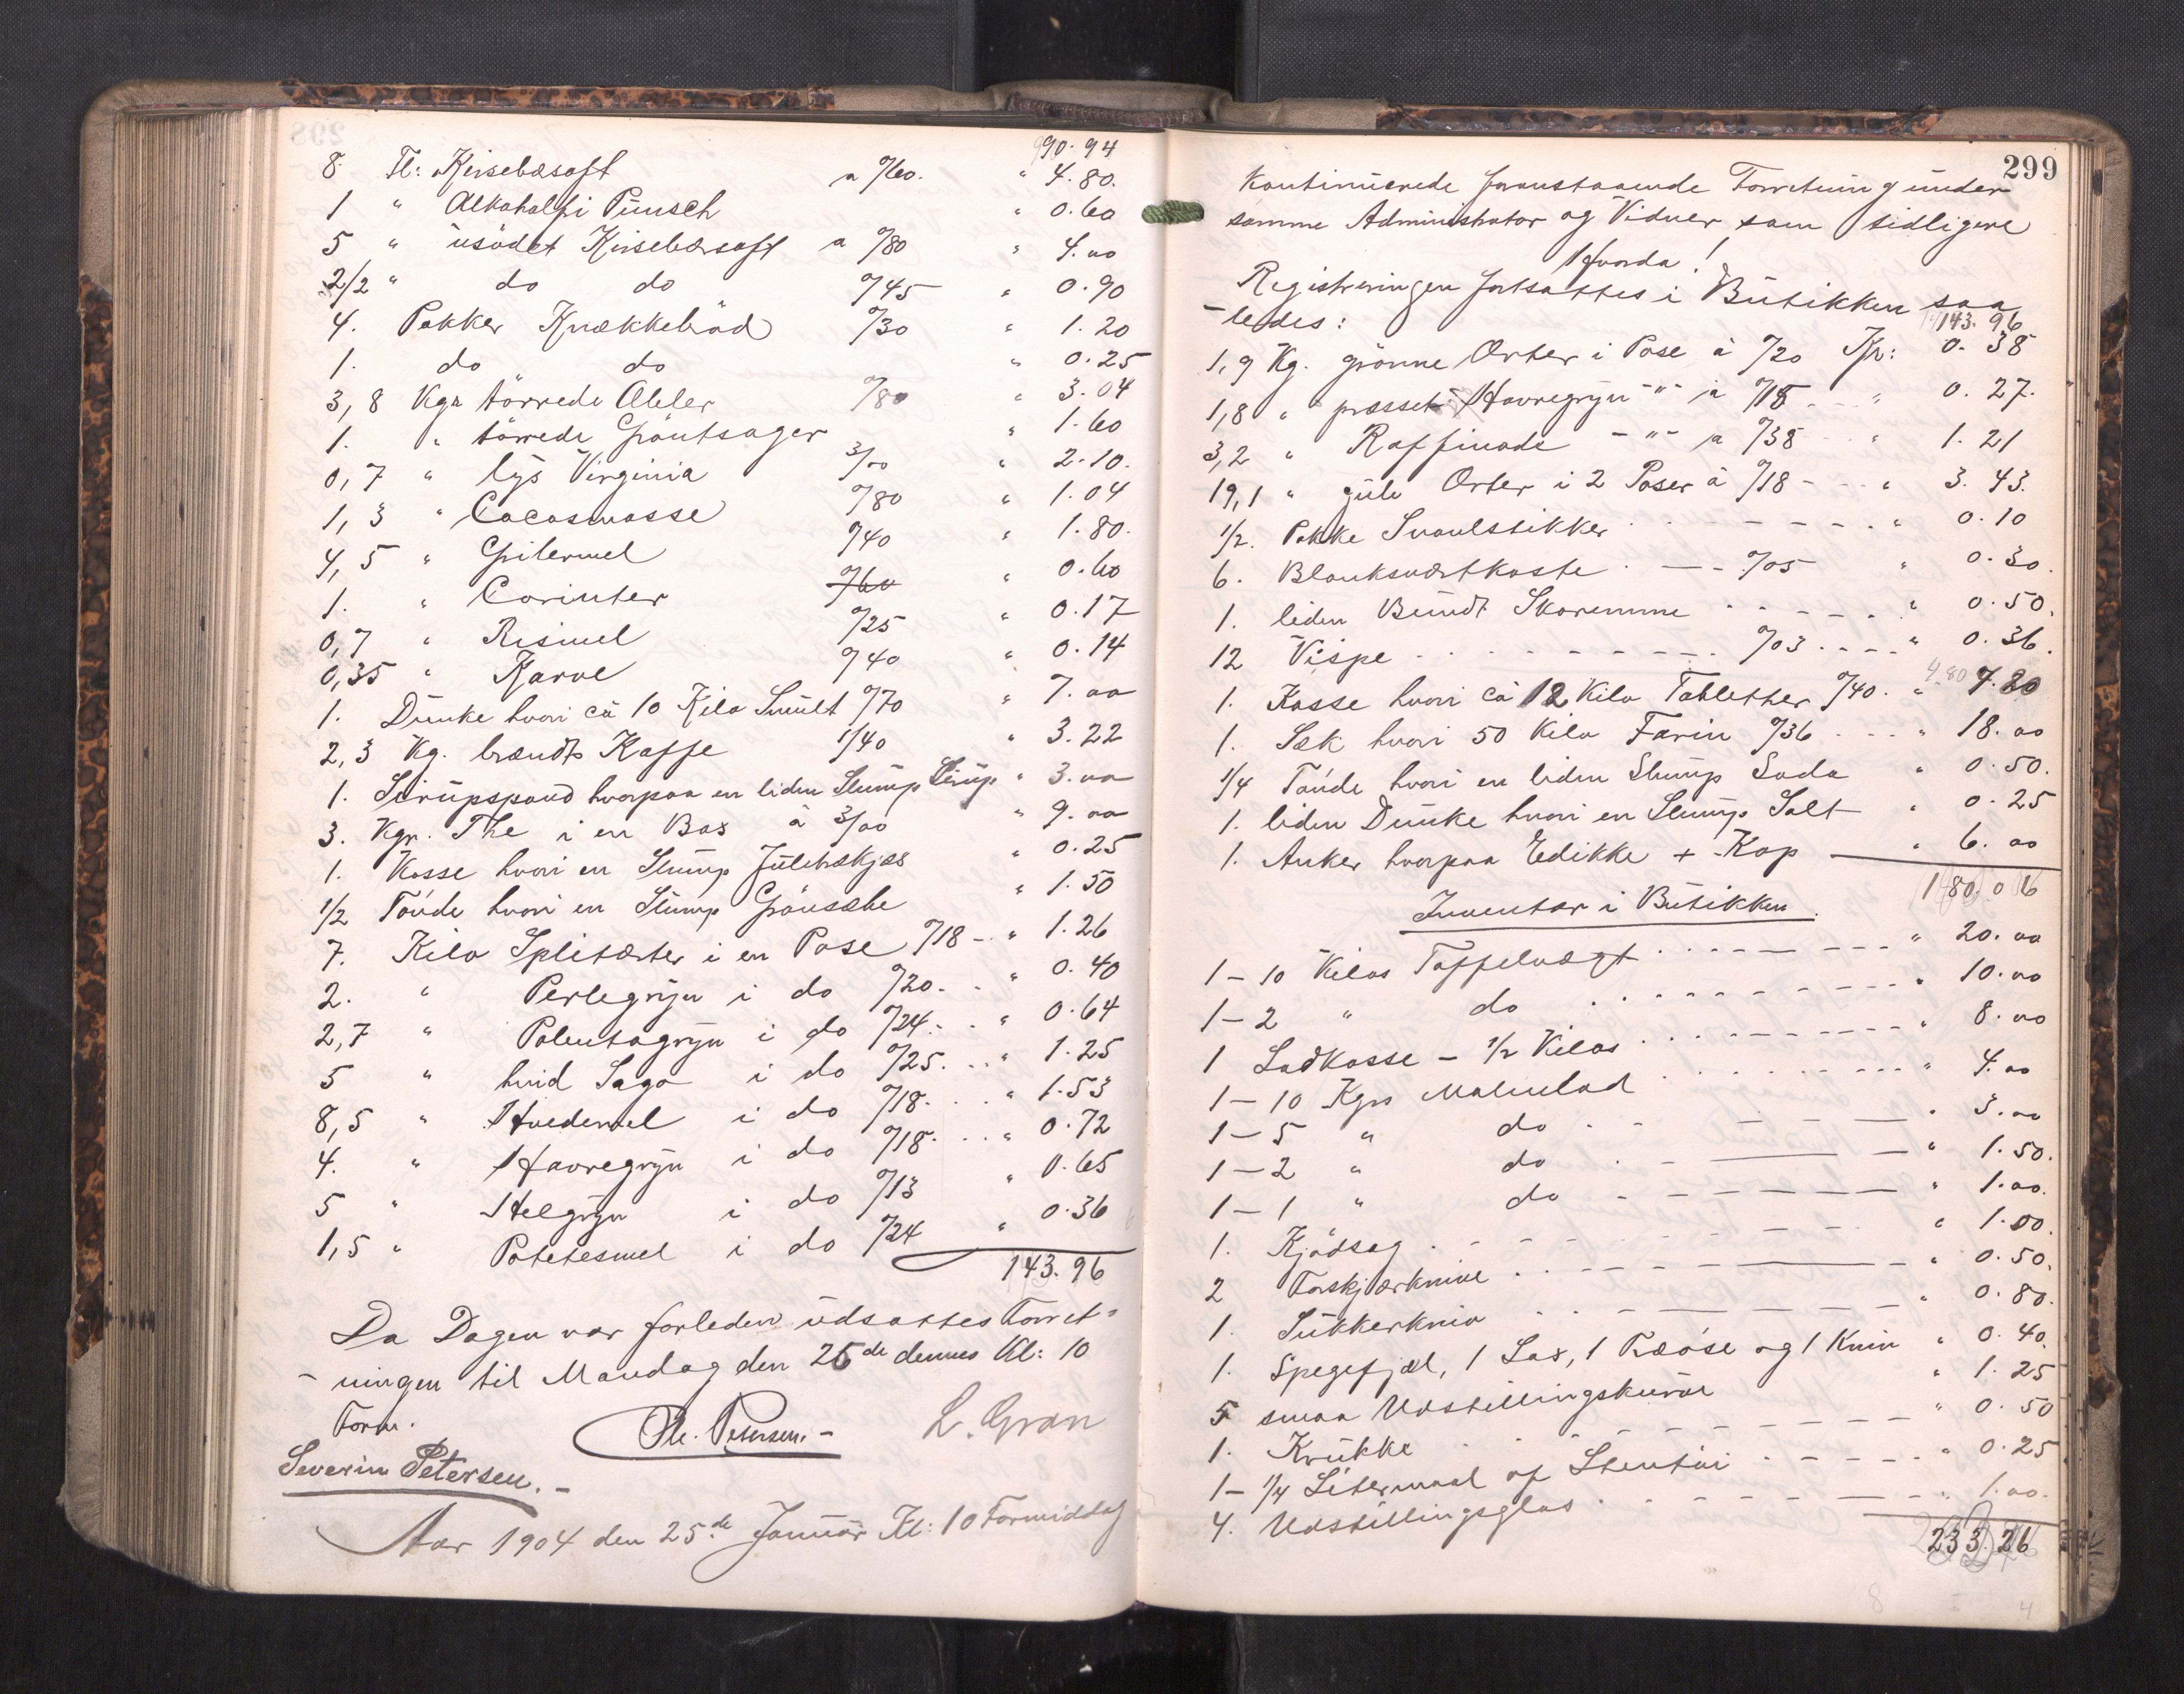 90.94
8 Fl: Kirsebæsaft a %60. " 4.80.
1 " Alkoholfri Punsch " 0.60
5 " usødet Kirsebærsaft a %80 " 4.00
2/2 " do do %45 " 0.90
4. Pakker Knækkebrød %30 " 1.20
1. do do " 0.25
3,8 Kgr tørrede Æbler %80 " 3.04
1. " tørrede Grøntsager " 1.60
0,7 " lys Virginia 3/00 " 2.10.
1,3 " Cacosmasse %80 " 1.04
4,5 " Gitermel %40 " 1.80.
1. " Corinter %60 " 0.60
0,7 " Rismel %25 " 0.17
0,35 " Karve %40 " 0.14
1. Dunke hvori cá 10 Kilo Smult %70 " 7.00
2,3 Kg. brændt Kaffe 1/40 " 3.22
1. Sirupspand hvorpaa en liden Slump Sirup " 3.00
3. Kgr. The i en Box à 3/00 " 9.00
1. Kasse hvori en Slump Julebrækjæs " 0.25
1/2 Tønde hvori en Slump Grønsæbe " 1.50
7. Kilo Splitærter i en Pose %18 - " 1.26
2. " Perlegryn i do %20. - " 0.40
2,7 " Polentagryn i do %24. - " 0.64
5 " hvid Sago i do %25. .. " 1.25
8,5 " Hvedemel i do %18. . . " 1.53
4. " Havregryn i do %18. .. " 0.72
5 " Helgryn i do %13 " 0.65
1,5 " Potetesmel i do %24 " 0.36
143.96
Da Dagen var forleden udsattes Forret=
-ningen til Mandag den 25de dennes Kl: 10
Form.
Chr. Petersen.- L. Gran
Severin Petersen.-
Aar 1904 den 25.de Januar Kl: 10 Formiddag
299
Kontinuerede foranstaaende Forretning under
samme Administrator og Vidner som tidligere
Hvorda!
Registreringen fortsattes i Butikken saa
-ledes: 143.96
1,9 Kg. grønne Ærter i Pose à %20 Kr: 0.38
1,8 " presset Havregryn -"- à %15 - " 0.27.
3,2 " Raffinade -"- a %38 - - " 1.21
19,1 " gule Ærter i 2 Poser à %18 - - " 3.43.
1/2. Pakke Svovlstikker - - - - " 0.10
6. Blanksværtkoste - - %05 " 0.30.
1. liden Bundt Skoremme - - - - " 0.50.
12 Vispe - - - - %03 - - - " 0.36.
1. Kasse hvori cá 12 Kilo Tabletter %40. " 4.80 4.80
1. Sæk hvori 50 Kilo Farin %36 - - " 18.00
1/4 Tønde hvori en liden Slump Soda " 0.50.
1. liden Dunke hvori en Slump Salt " 0.25
1. Anker hvorpaa Edikke + Kop - " 6.00
180.06
Inventar i Butikken.
1-10 Kilos Taffelvægt - - - - " 20.00
1-2 " do - - - - " 10.00
1 Lodkasse - 1/2 Kilos - - - - " 8.00
1-10 Kgrs Malmlod - - - - " 4.00
1-5 " do - - - - " 3.00
1-2 " do - - - - " 1.50.
1-1 " do - - - - " 1.00.
1. Kjødsag - - - - " 1.00.
2 Forskjærknive - - - - " 0.50.
1. Sukkerkniv - - - - " 0.80.
1. Spegefjæl, 1 Sax, 1 Træøse og 1 Kniv " 0.40.
5 smaa Udstillingskurve " 1.25
1. Krukke - - - - " 0.50
1-1/4 Litermaal af Stentøi - - - - " 0.25
4. Udstillingsglas - - - - " 1.00.
233.26